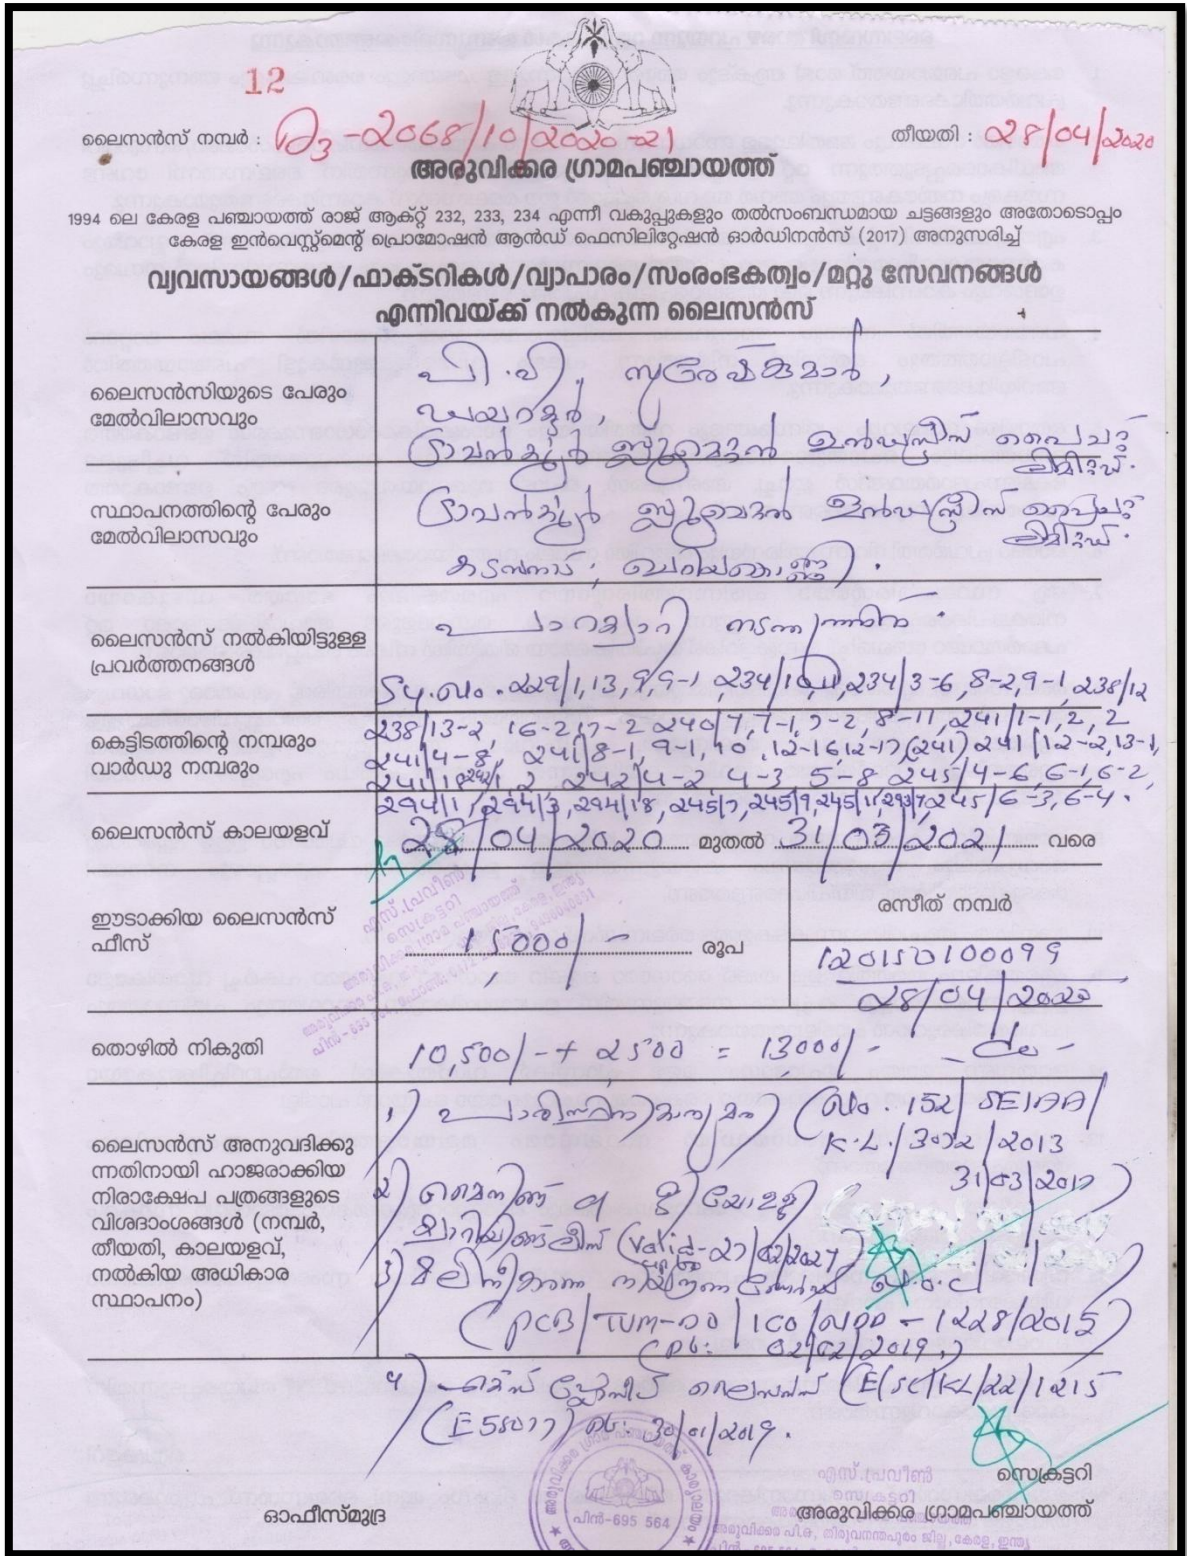 12
ലൈസൻസ് നമ്പർ : A3-2068/10/2020-21
തീയതി : 28/04/2020
അരുവിക്കര ഗ്രാമപഞ്ചായത്ത്
1994 ലെ കേരള പഞ്ചായത്ത് രാജ് ആക്റ്റ് 232, 233, 234 എന്നീ വകുപ്പുകളും തൽസംബന്ധമായ ചട്ടങ്ങളും അതോടൊപ്പം
കേരള ഇൻവെസ്റ്റ്മെന്റ് പ്രൊമോഷൻ ആൻഡ് ഫെസിലിറ്റേഷൻ ഓർഡിനൻസ് (2017) അനുസരിച്ച്
വ്യവസായങ്ങൾ/ഫാക്ടറികൾ/വ്യാപാരം/സംരംഭകത്വം/മറ്റു സേവനങ്ങൾ
എന്നിവയ്ക്ക് നൽകുന്ന ലൈസൻസ്
ലൈസൻസിയുടെ പേരും
മേൽവിലാസവും
പി.വി. സുരേഷ്കുമാർ,
ഡയറക്ടർ,
ട്രാവൻകൂർ ബ്ലൂമെറ്റൽ ഇൻഡസ്ട്രീസ് പ്രൈവറ്റ്
ലിമിറ്റഡ്.
സ്ഥാപനത്തിന്റെ പേരും
മേൽവിലാസവും
ട്രാവൻകൂർ ബ്ലൂമെറ്റൽ ഇൻഡസ്ട്രീസ് പ്രൈവറ്റ്
ലിമിറ്റഡ്.
കടമ്പനാട്, ചെറിയകൊണ്ണി.
ലൈസൻസ് നൽകിയിട്ടുള്ള
പ്രവർത്തനങ്ങൾ
പാറക്വാറി നടത്തുന്നതിന്
Sy.No. 229/1,13,9,9-1, 234/10, 234/3-6, 8-2, 9-1, 238/12
കെട്ടിടത്തിന്റെ നമ്പരും
വാർഡു നമ്പരും
238/13-2, 16-2, 17-2 240/7, 7-1, 7-2, 8-11, 241/1-1, 2, 2
241/4-8, 241/8-1, 9-1, 10, 12-16, 12-17 (241) 241/12-2, 13-1,
242/4-2, 4-3, 5-8 245/4-6, 6-1, 6-2,
294/1, 294/3, 294/18, 245/7, 245/9, 245/11, 293/7, 245/6-3, 6-4.
ലൈസൻസ് കാലയളവ്
28/04/2020 മുതൽ 31/03/2021 വരെ
ഈടാക്കിയ ലൈസൻസ്
ഫീസ്
15000/- രൂപ
രസീത് നമ്പർ
120150100099
28/04/2020
തൊഴിൽ നികുതി
10,500/- + 2500 = 13000/- - do -
ലൈസൻസ് അനുവദിക്കു
ന്നതിനായി ഹാജരാക്കിയ
നിരാക്ഷേപ പത്രങ്ങളുടെ
വിശദാംശങ്ങൾ (നമ്പർ,
തീയതി, കാലയളവ്,
നൽകിയ അധികാര
സ്ഥാപനം)
1) പാരിസ്ഥിതികാനുമതി (No. 152/SEIAA/
K.L./3072/2013
31/03/2017)
2) മൈനിങ് & ജിയോളജി
ക്വാറിയിങ്ങ് ലീസ് (valid - 27/02/2027)
3) മലിനീകരണ നിയന്ത്രണബോർഡ് N.O.C
(PCB/TVM-DO/ICO/NDD-1228/2015)
(Dt: 02/02/2019.)
4) എക്സ്പ്ലോസീവ് ലൈസൻസ് (E/SC/KL/22/1215
(E58077) Dt: 30/01/2019.
എസ്.പ്രവീൺ
സെക്രട്ടറി
പിൻ-695 564
ഓഫീസ്മുദ്ര
എസ്.പ്രവീൺ
സെക്രട്ടറി
അരുവിക്കര പി.ഒ, തിരുവനന്തപുരം ജില്ല, കേരള, ഇന്ത്യ
സെക്രട്ടറി
അരുവിക്കര ഗ്രാമപഞ്ചായത്ത്